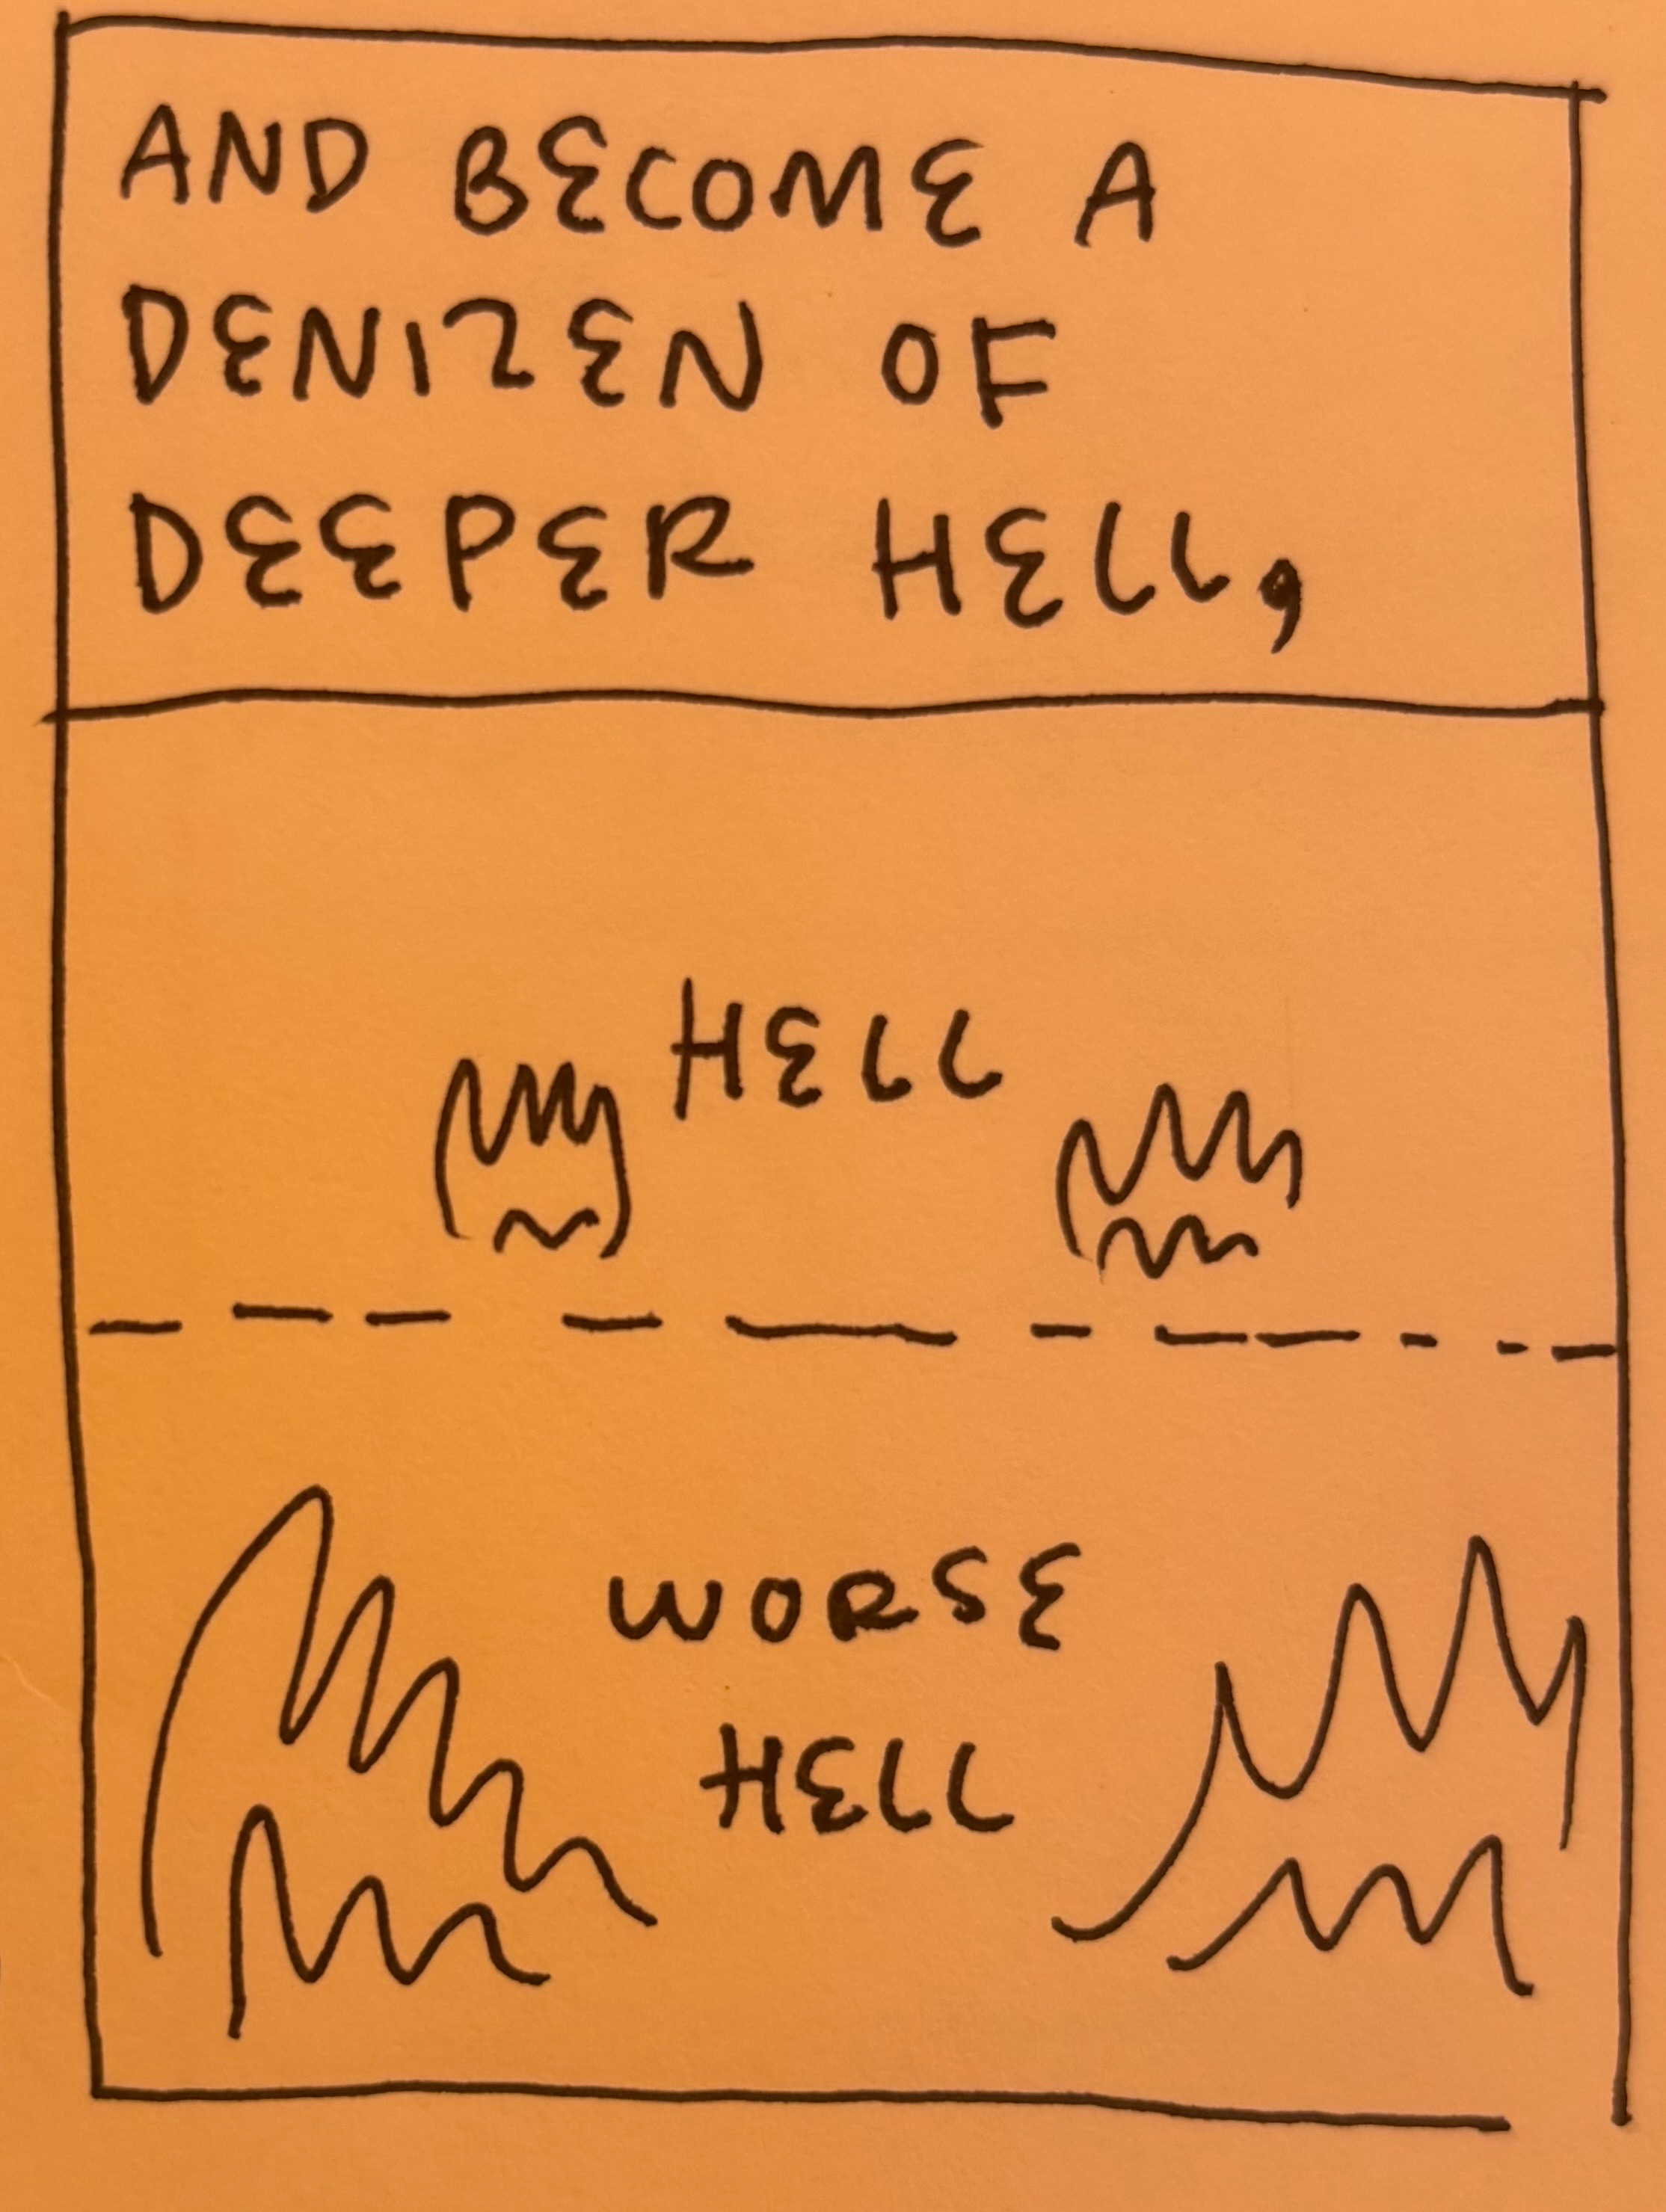 AND BECOME A
DENIZEN OF
DEEPER HELL,
HELL
WORSE
HELL